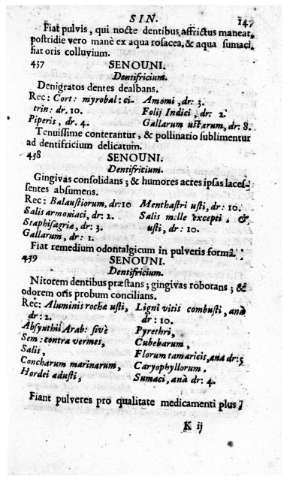 SIN. 147
Fiat pulvis, qui nocte dentibus affrictus maneat,
postridie vero manè ex aqua rosacea, & aqua sumaci,
fiat oris colluvium.
437 SENOUNI.
Dentifricium.
Denigratos dentes dealbans.
Rec: Cort: myrobal: ci- Amomi, dr: 3.
trin: dr. 10. Folij Indici, dr: 2.
Piperis, dr. 4. Gallarum ustarum, dr: 8.
Tenuissime conterantur, & pollinatio sublimentur
ad dentifricium delicatum.
438 SENOUNI.
Dentifricium.
Gingivas consolidans; & humores acres ipsas laces-
sentes absumens.
Rec: Balaustiorum, dr: 10 Menthastri usti, dr: 10.
Salis armoniaci, dr: 2. Salis melle excepti, &
Staphisagria, dr: 3. usti, dr: 10.
Gallarum, dr: 1.
Fiat remedium odontalgicum in pulveris formâ.
439 SENOUNI.
Dentifricium.
Nitorem dentibus præstans; gingivas roborans; &
odorem oris probum concilians.
Rec: Aluminis rochæ usti, Ligni vitis combusti, anà
dr: 2. dr: 10.
Absynthii Arab: sivè Pyrethri,
Sem: contra vermes, Cubebarum,
Salis, Florum tamaricis, anà dr: 5
Concharum marinarum, Caryophyllorum,
Hordei adusti, Sumaci, anà dr: 4.
Fiant pulveres pro qualitate medicamenti plus
K ij